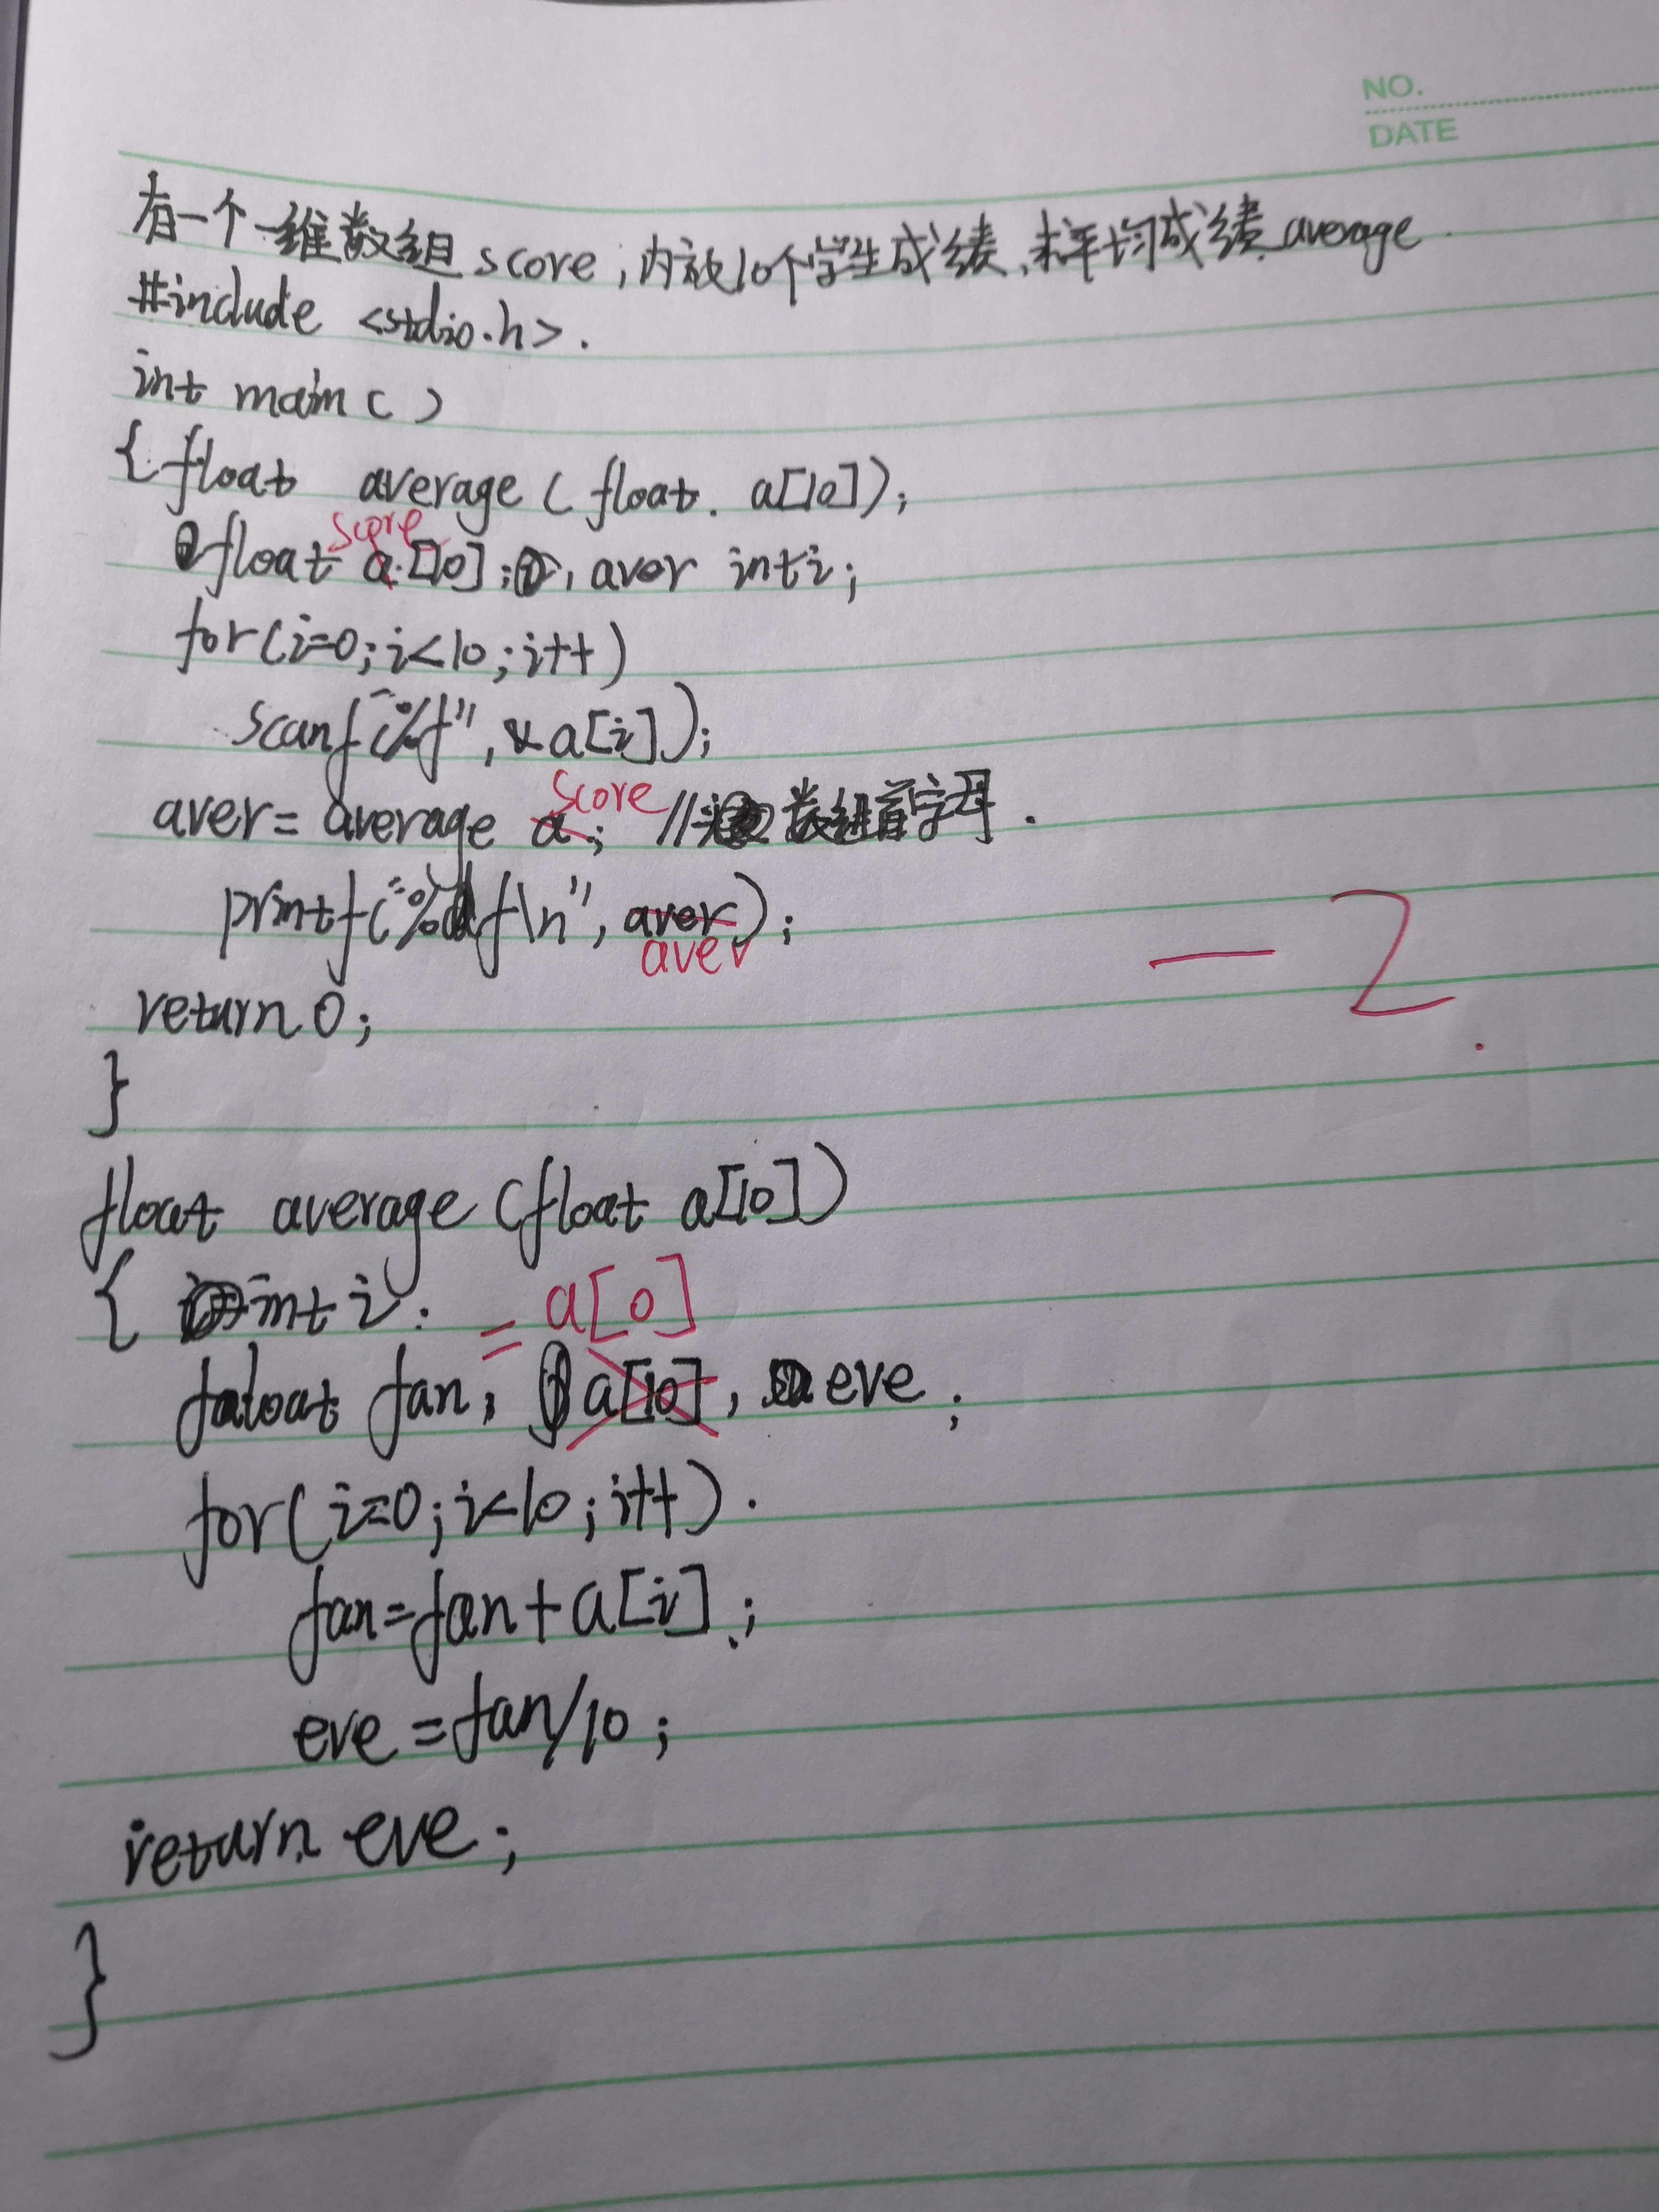 NO.
DATE
有一个一维数组score,内放10个学生成绩,求平均成绩average.
#include <stdio.h>.
int main( )
{ float average ( float. a[10]);
score
float a.[10]; , aver int i;
for(i=0;i<10;i++)
scanf("%f", &a[i]);
score
aver= average a; // 数组首字母.
printf("%f\n", aver);
aver
-2.
return 0;
}
float average (float a[10])
{ int i.
= a[0]
faloat fan, a[10], eve;
for(i=0;i<10;i++).
fan=fan+a[i];
eve=fan/10;
return eve;
}